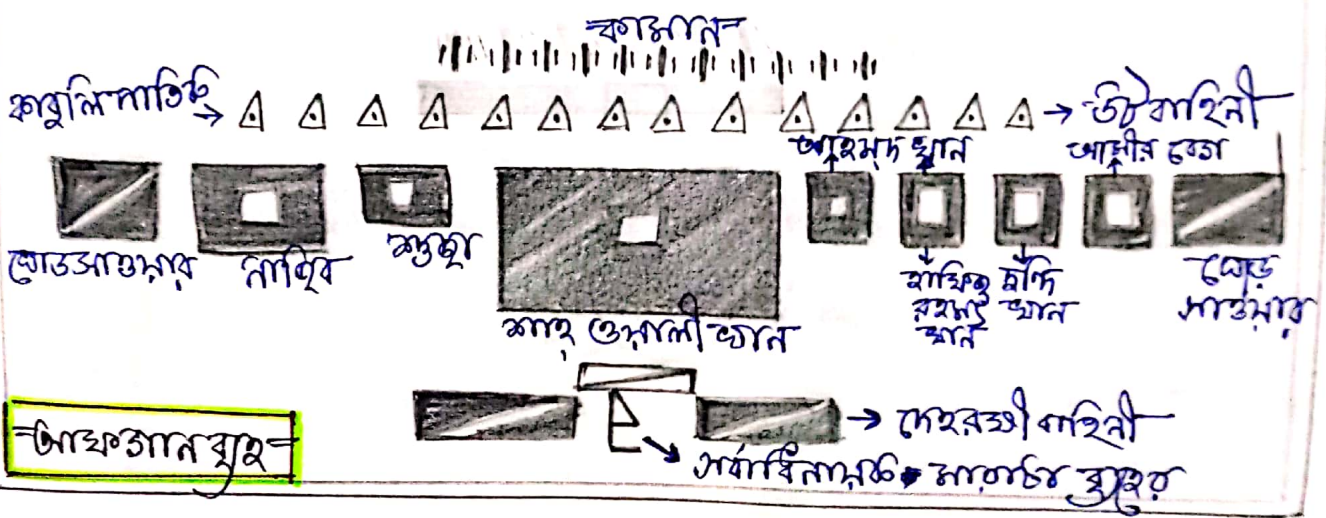 কামান
কাবুলি পাতিছ
উট বাহিনী
আহমদ খান
আমীর বেগ
ঘোড়সাওয়ার
নাজিব
শুজা
শাহ্ ওয়ালী খান
হাফিজ রহমত খান
দুন্দি খান
ঘোড় সাওয়ার
দেহরক্ষী বাহিনী
সর্বাধিনায়ক মারাঠা ব্যুহের
আফগান ব্যুহ